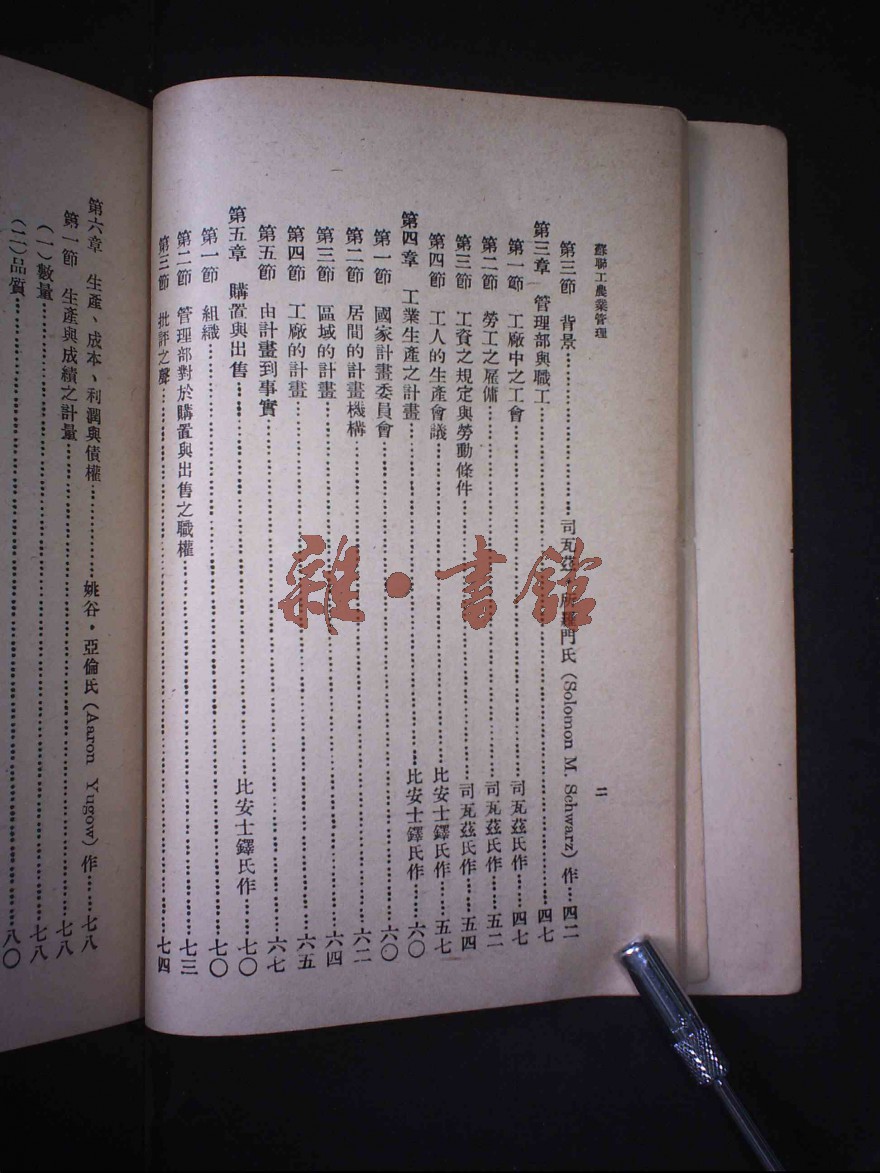 蘇聯工農業管理
二
第三節　背景……司瓦茲・所羅門氏（Solomon M. Schwarz）作……四二
第三章　管理部與職工……四七
第一節　工廠中之工會……司瓦茲氏作……四七
第二節　勞工之雇傭……司瓦茲氏作……五二
第三節　工資之規定與勞動條件……司瓦茲氏作……五四
第四節　工人的生產會議……比安士鐸氏作……五七
第四章　工業生產之計畫……比安士鐸氏作……六〇
第一節　國家計畫委員會……六〇
第二節　居間的計畫機構……六二
第三節　區域的計畫……六四
第四節　工廠的計畫……六五
第五節　由計畫到事實……六七
第五章　購置與出售……比安士鐸氏作……七〇
第一節　組織……七〇
第二節　管理部對於購置與出售之職權……七三
第三節　批評之聲……七四
第六章　生產、成本、利潤與債權……姚谷・亞倫氏（Aaron Yugow）作……七八
第一節　生產與成績之計量……七八
（一）數量……七八
（二）品質……八〇
雜・書館